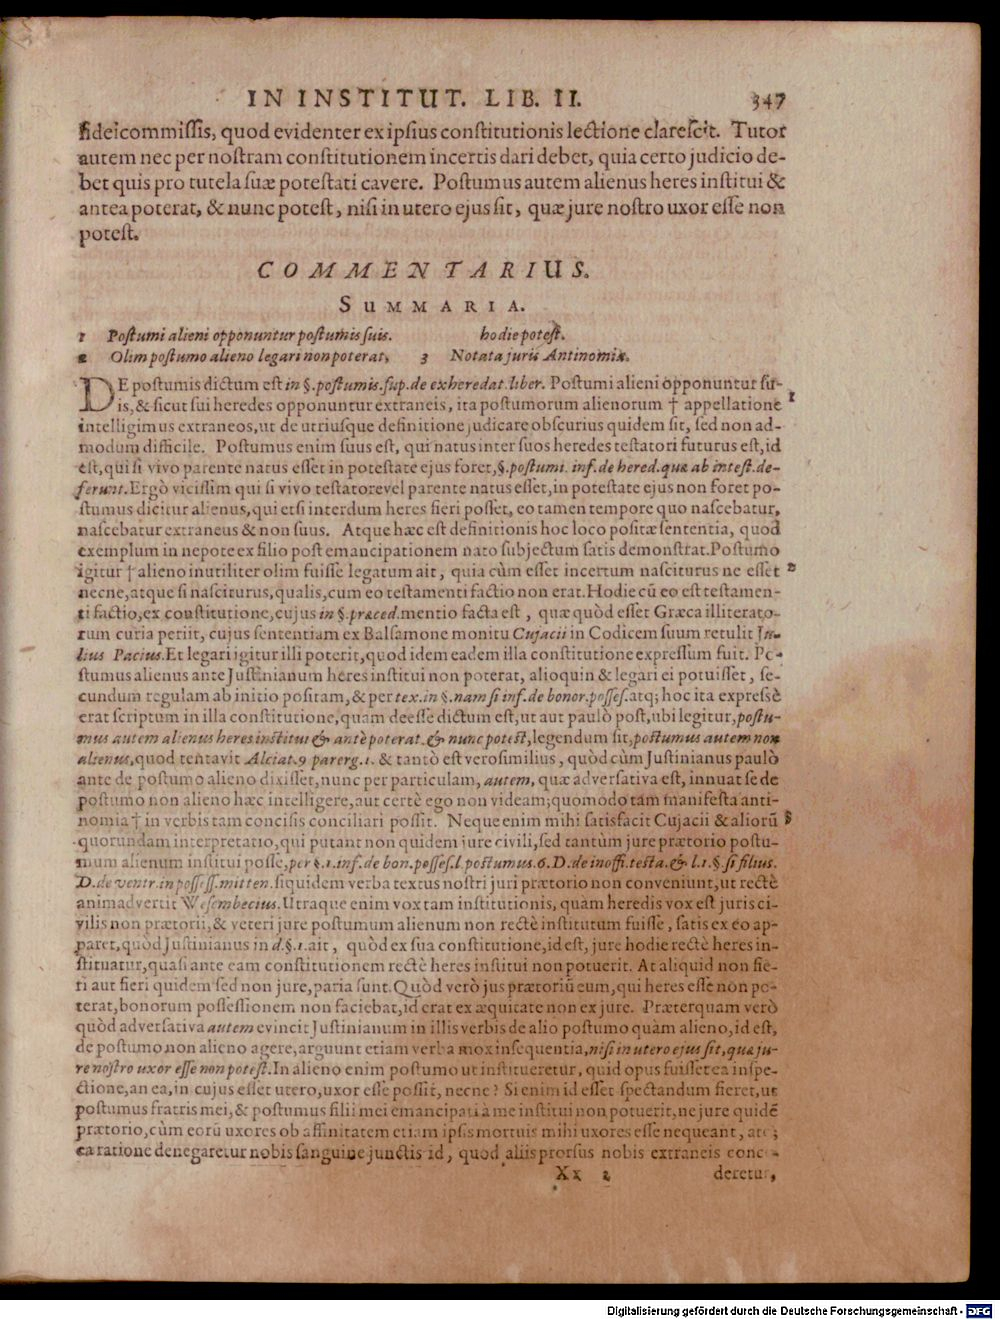 IN INSTITUT. LIB. II. 347
fideicommissis, quod evidenter ex ipsius constitutionis lectione clarescit. Tutor
autem nec per nostram constitutionem incertis dari debet, quia certo judicio de-
bet quis pro tutela suæ potestati cavere. Postumus autem alienus heres institui &
antea poterat, & nunc potest, nisi in utero ejus sit, quæ jure nostro uxor esse non
potest.
COMMENTARIUS.
SUMMARIA.
1 Postumi alieni opponuntur postumis suis. hodie potest.
2 Olim postumo alieno legari non poterat, 3 Notata juris Antinomia.
DE postumis dictum est in §. postumis. sup. de exheredat. liber. Postumi alieni opponuntur su-
is, & sicut sui heredes opponuntur extraneis, ita postumorum alienorum † appellatione 1
intelligimus extraneos, ut de utriusque definitione judicare obscurius quidem sit, sed non ad-
modum difficile. Postumus enim suus est, qui natus inter suos heredes testatori futurus est, id
est, qui si vivo parente natus esset in potestate ejus foret, §. postumi. inf. de hered. quæ ab intest. de-
ferunt. Ergò vicissim qui si vivo testatore vel parente natus esset, in potestate ejus non foret po-
stumus dicitur alienus, qui etsi interdum heres fieri posset, eo tamen tempore quo nascebatur,
nascebatur extraneus & non suus. Atque hæc est definitionis hoc loco positæ sententia, quod
exemplum in nepote ex filio post emancipationem nato subjectum satis demonstrat. Postumo
igitur † alieno inutiliter olim fuisse legatum ait, quia cùm esset incertum nasciturus ne esset 2
necne, atque si nasciturus, qualis, cum eo testamenti factio non erat. Hodie cū eo est testamen-
ti factio, ex constitutione, cujus in §. præced. mentio facta est, quæ quòd esset Græca illiterato-
rum curia periit, cujus sententiam ex Balsamone monitu Cujacii in Codicem suum retulit Ju-
lius Pacius. Et legari igitur illi poterit, quod idem eadem illa constitutione expressum fuit. Po-
stumus alienus ante Justinianum heres institui non poterat, alioquin & legari ei potuisset, se-
cundum regulam ab initio positam, & per tex. in §. nam si inf. de bonor. posses. atq; hoc ita expressè
erat scriptum in illa constitutione, quam deesse dictum est, ut aut paulò post, ubi legitur, postu-
mus autem alienus heres institui & antè poterat, & nunc potest, legendum sit, postumus autem non
alienus, quod tentavit Alciat. 9 parerg. 1. & tantò est verosimilius, quòd cùm Justinianus paulò
ante de postumo alieno dixisset, nunc per particulam, autem, quæ adversativa est, innuat se de
postumo non alieno hæc intelligere, aut certè ego non videam; quomodo tam manifesta anti-
nomia † in verbis tam concisis conciliari possit. Neque enim mihi satisfacit Cujacii & aliorū 3
quorundam interpretatio, qui putant non quidem jure civili, sed tantùm jure prætorio postu-
mum alienum institui posse, per §. 1. inf. de bon. posses. l. postumus. 6. D. de inoffi. testa. & l. 1. §. si filius.
D. de ventr. in possess. mitten. siquidem verba textus nostri juri prætorio non conveniunt, ut rectè
animadvertit Wesembecius. Utraque enim vox tam institutionis, quàm heredis vox est juris ci-
vilis non prætorii, & veteri jure postumum alienum non rectè institutum fuisse, satis ex eo ap-
paret, quòd Justinianus in d. §. 1. ait, quòd ex sua constitutione, id est, jure hodie rectè heres in-
stituatur, quasi ante eam constitutionem rectè heres institui non potuerit. At aliquid non fie-
ri aut fieri quidem sed non jure, paria sunt. Quòd verò jus prætoriū eum, qui heres esse non po-
terat, bonorum possessionem non faciebat, id erat ex æquitate non ex jure. Præterquam verò
quòd adversativa autem evincit Justinianum in illis verbis de alio postumo quàm alieno, id est,
de postumo non alieno agere, arguunt etiam verba mox insequentia, nisi in utero ejus sit, quæ ju-
re nostro uxor esse non potest. In alieno enim postumo ut institueretur, quid opus fuisset ea inspe-
ctione, an ea, in cujus esset utero, uxor esse possit, necne? Si enim id esset spectandum fieret, ut
postumus fratris mei, & postumus filii mei emancipati à me institui non potuerit, ne jure quidē
prætorio, cùm eorū uxores ob affinitatem etiam ipsis mortuis mihi uxores esse nequeant, atq;
ea ratione denegaretur nobis sanguine junctis id, quod aliis prorsus nobis extraneis conce-
Xx 2 deretur,
Digitalisierung gefördert durch die Deutsche Forschungsgemeinschaft - DFG